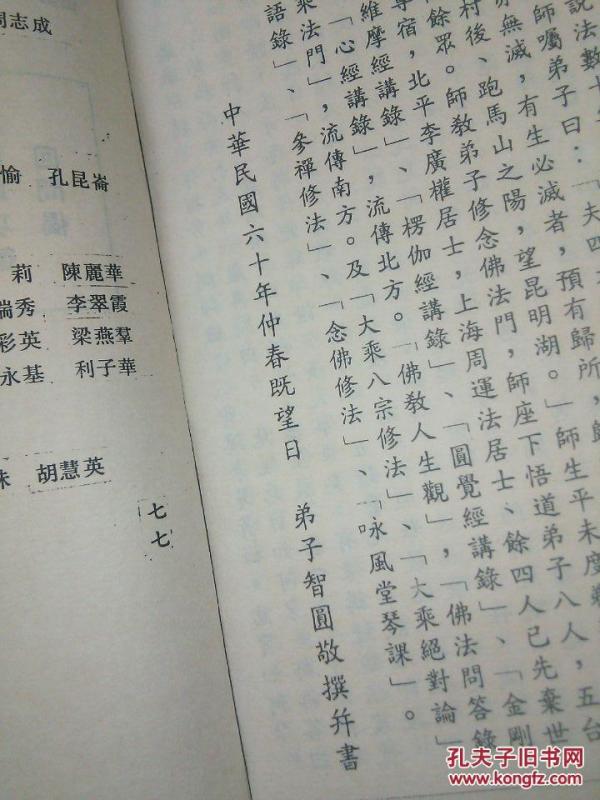 說法數十
師囑弟子曰：「夫四
亦無滅，有生必滅者，預有歸所，歸
村後、跑馬山之陽，望昆明湖。」師生平未度
餘眾。師教弟子修念佛法門，師座下悟道弟子八人，五台
尊宿，北平李廣權居士，上海周運法居士、餘四人已先棄世
維摩經講錄」、「楞伽經講錄」、「圓覺經講錄」、「金剛
「心經講錄」，流傳北方。「佛教人生觀」，「佛法問答錄
乘法門」，流傳南方。及「大乘八宗修法」、「大乘絕對論」
語錄」、「參禪修法」、「念佛修法」、「咏風堂琴課」。
中華民國六十年仲春既望日 弟子智圓敬撰幷書
周志成
愉 孔昆崙
莉 陳麗華
瑞秀 李翠霞
彩英 梁燕羣
永基 利子華
胡慧英
七七
孔夫子旧书网
www.kongfz.com